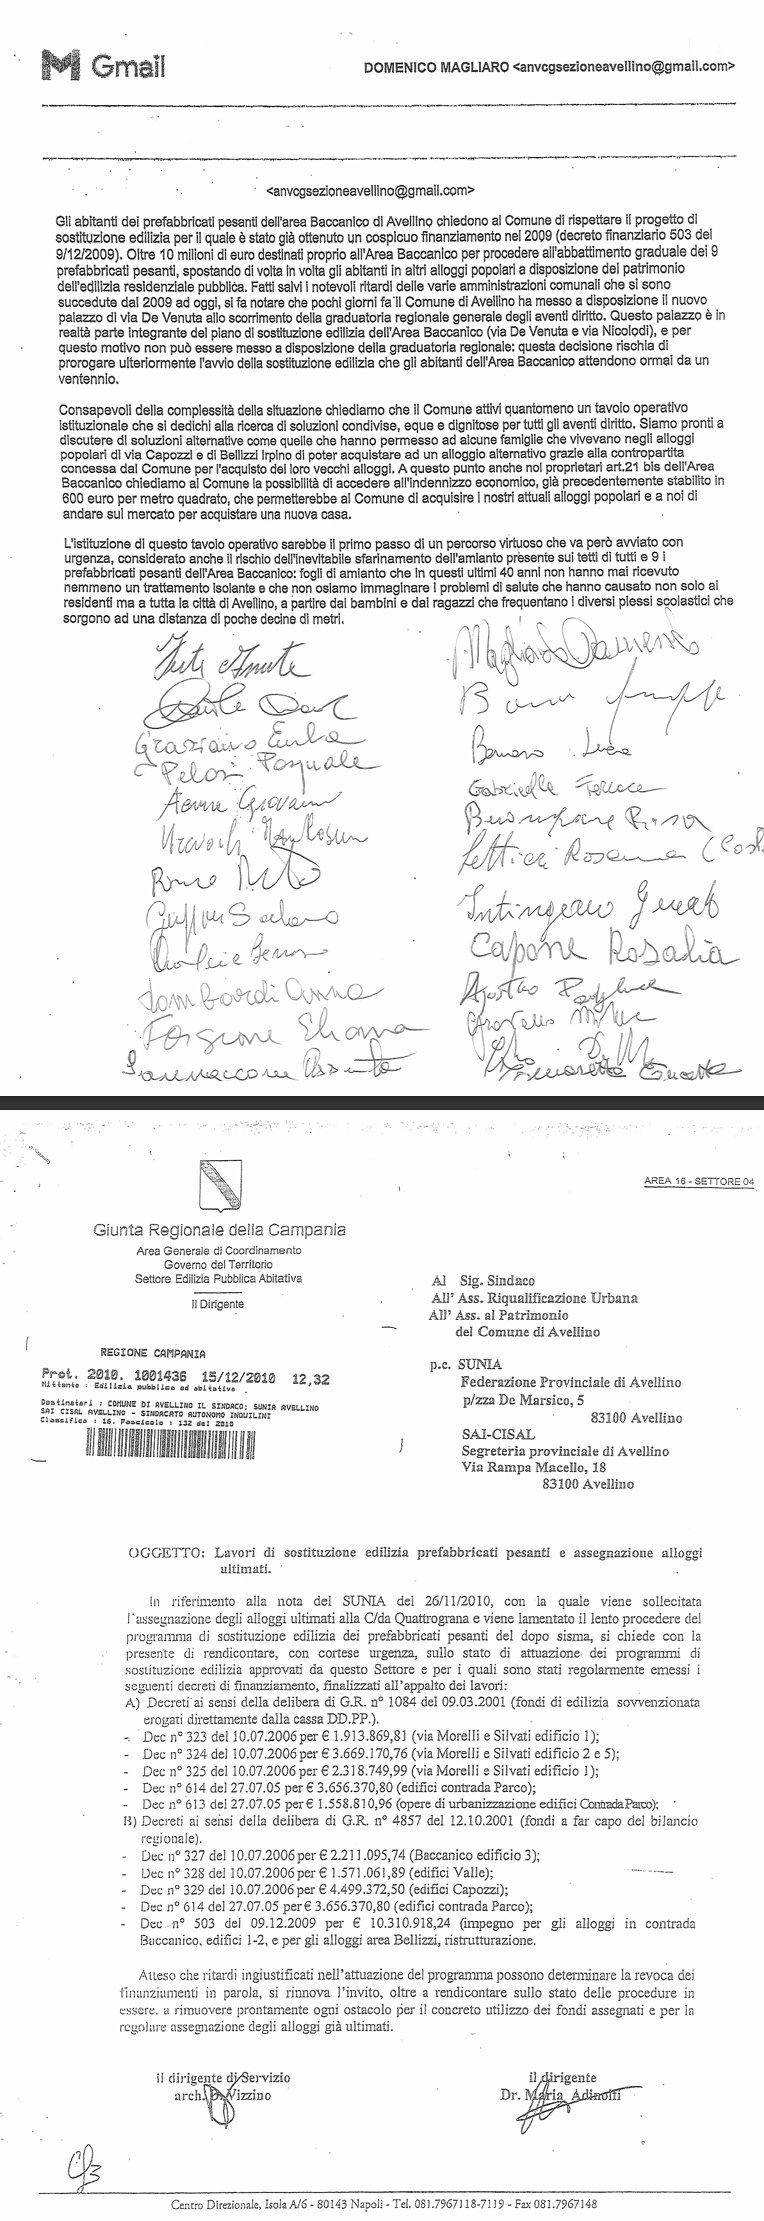 Gmail
DOMENICO MAGLIARO <anvcgsezioneavellino@gmail.com>
<anvcgsezioneavellino@gmail.com>
Gli abitanti dei prefabbricati pesanti dell'area Baccanico di Avellino chiedono al Comune di rispettare il progetto di
sostituzione edilizia per il quale è stato già ottenuto un cospicuo finanziamento nel 2009 (decreto finanziario 503 del
9/12/2009). Oltre 10 milioni di euro destinati proprio all'Area Baccanico per procedere all'abbattimento graduale dei 9
prefabbricati pesanti, spostando di volta in volta gli abitanti in altri alloggi popolari a disposizione del patrimonio
dell'edilizia residenziale pubblica. Fatti salvi i notevoli ritardi delle varie amministrazioni comunali che si sono
succedute dal 2009 ad oggi, si fa notare che pochi giorni fa il Comune di Avellino ha messo a disposizione il nuovo
palazzo di via De Venuta allo scorrimento della graduatoria regionale generale degli aventi diritto. Questo palazzo è in
realtà parte integrante del piano di sostituzione edilizia dell'Area Baccanico (via De Venuta e via Nicolodi), e per
questo motivo non può essere messo a disposizione della graduatoria regionale: questa decisione rischia di
prorogare ulteriormente l'avvio della sostituzione edilizia che gli abitanti dell'Area Baccanico attendono ormai da un
ventennio.
Consapevoli della complessità della situazione chiediamo che il Comune attivi quantomeno un tavolo operativo
istituzionale che si dedichi alla ricerca di soluzioni condivise, eque e dignitose per tutti gli aventi diritto. Siamo pronti a
discutere di soluzioni alternative come quelle che hanno permesso ad alcune famiglie che vivevano negli alloggi
popolari di via Capozzi e di Bellizzi Irpino di poter acquistare ad un alloggio alternativo grazie alla contropartita
concessa dal Comune per l'acquisto dei loro vecchi alloggi. A questo punto anche noi proprietari art.21 bis dell'Area
Baccanico chiediamo al Comune la possibilità di accedere all'indennizzo economico, già precedentemente stabilito in
600 euro per metro quadrato, che permetterebbe al Comune di acquisire i nostri attuali alloggi popolari e a noi di
andare sul mercato per acquistare una nuova casa.
L'istituzione di questo tavolo operativo sarebbe il primo passo di un percorso virtuoso che va però avviato con
urgenza, considerato anche il rischio dell'inevitabile sfarinamento dell'amianto presente sui tetti di tutti e 9 i
prefabbricati pesanti dell'Area Baccanico: fogli di amianto che in questi ultimi 40 anni non hanno mai ricevuto
nemmeno un trattamento isolante e che non osiamo immaginare i problemi di salute che hanno causato non solo ai
residenti ma a tutta la città di Avellino, a partire dai bambini e dai ragazzi che frequentano i diversi plessi scolastici che
sorgono ad una distanza di poche decine di metri.
Magliaro Domenico
Graziano
Pelosi Pasquale
Gabriella
Lettieri Rosanna
Capone Rosalia
Lombardi Anna
Forgione Eliana
Iannaccone Assunta
AREA 16 - SETTORE 04
Giunta Regionale della Campania
Area Generale di Coordinamento
Governo del Territorio
Settore Edilizia Pubblica Abitativa
Il Dirigente
REGIONE CAMPANIA
Prot. 2010. 1001436 15/12/2010 12,32
Mittente : Edilizia pubblica ed abitativa
Destinatari : COMUNE DI AVELLINO IL SINDACO; SUNIA AVELLINO
SAI CISAL AVELLINO - SINDACATO AUTONOMO INQUILINI
Classifica : 16. Fascicolo : 132 del 2010
Al Sig. Sindaco
All' Ass. Riqualificazione Urbana
All' Ass. al Patrimonio
del Comune di Avellino
p.c. SUNIA
Federazione Provinciale di Avellino
p/zza De Marsico, 5
83100 Avellino
SAI-CISAL
Segreteria provinciale di Avellino
Via Rampa Macello, 18
83100 Avellino
OGGETTO: Lavori di sostituzione edilizia prefabbricati pesanti e assegnazione alloggi
ultimati.
In riferimento alla nota del SUNIA del 26/11/2010, con la quale viene sollecitata
l'assegnazione degli alloggi ultimati alla C/da Quattrograna e viene lamentato il lento procedere del
programma di sostituzione edilizia dei prefabbricati pesanti del dopo sisma, si chiede con la
presente di rendicontare, con cortese urgenza, sullo stato di attuazione dei programmi di
sostituzione edilizia approvati da questo Settore e per i quali sono stati regolarmente emessi i
seguenti decreti di finanziamento, finalizzati all'appalto dei lavori:
A) Decreti ai sensi della delibera di G.R. n° 1084 del 09.03.2001 (fondi di edilizia sovvenzionata
erogati direttamente dalla cassa DD.PP.).
- Dec n° 323 del 10.07.2006 per € 1.913.869,81 (via Morelli e Silvati edificio 1);
- Dec n° 324 del 10.07.2006 per € 3.669.170,76 (via Morelli e Silvati edificio 2 e 5);
- Dec n° 325 del 10.07.2006 per € 2.318.749,99 (via Morelli e Silvati edificio 1);
- Dec n° 614 del 27.07.05 per € 3.656.370,80 (edifici contrada Parco);
- Dec n° 613 del 27.07.05 per € 1.558.810,96 (opere di urbanizzazione edifici Contrada Parco);
B) Decreti ai sensi della delibera di G.R. n° 4857 del 12.10.2001 (fondi a far capo del bilancio
regionale).
- Dec n° 327 del 10.07.2006 per € 2.211.095,74 (Baccanico edificio 3);
- Dec n° 328 del 10.07.2006 per € 1.571.061,89 (edifici Valle);
- Dec n° 329 del 10.07.2006 per € 4.499.372,50 (edifici Capozzi);
- Dec n° 614 del 27.07.05 per € 3.656.370,80 (edifici contrada Parco);
- Dec n° 503 del 09.12.2009 per € 10.310.918,24 (impegno per gli alloggi in contrada
Baccanico, edifici 1-2, e per gli alloggi area Bellizzi, ristrutturazione.
Atteso che ritardi ingiustificati nell'attuazione del programma possono determinare la revoca dei
finanziamenti in parola, si rinnova l'invito, oltre a rendicontare sullo stato delle procedure in
essere, a rimuovere prontamente ogni ostacolo per il concreto utilizzo dei fondi assegnati e per la
regolare assegnazione degli alloggi già ultimati.
il dirigente di Servizio
arch. Vizzino
il dirigente
Dr. Maria Adinolfi
Centro Direzionale, Isola A/6 - 80143 Napoli - Tel. 081.7967118-7119 - Fax 081.7967148